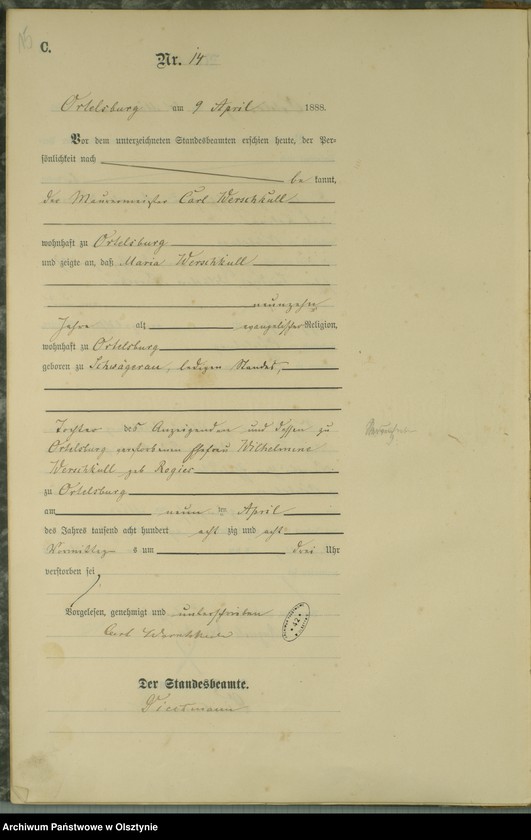 C.
Nr. 14
Ortelsburg am 9 April 1888.
Vor dem unterzeichneten Standesbeamten erschien heute, der Per-
sönlichkeit nach
be kannt,
der Maurermeister Carl Werschkull
wohnhaft zu Ortelsburg
und zeigte an, daß Maria Werschkull
neunzehn
Jahre alt evangelischer Religion,
wohnhaft zu Ortelsburg
geboren zu Schwägerau, ledigen Standes,
Tochter des Anzeigenden und dessen zu
Ortelsburg verstorbenen Ehefrau Wilhelmine
Werschkull geb Rogier
zu Ortelsburg
am neun ten April
des Jahres tausend acht hundert acht zig und acht
Vormittag s um drei Uhr
verstorben sei
Vorgelesen, genehmigt und unterschrieben
Carl Werschkull
42
Der Standesbeamte.
Archiwum Państwowe w Olsztynie